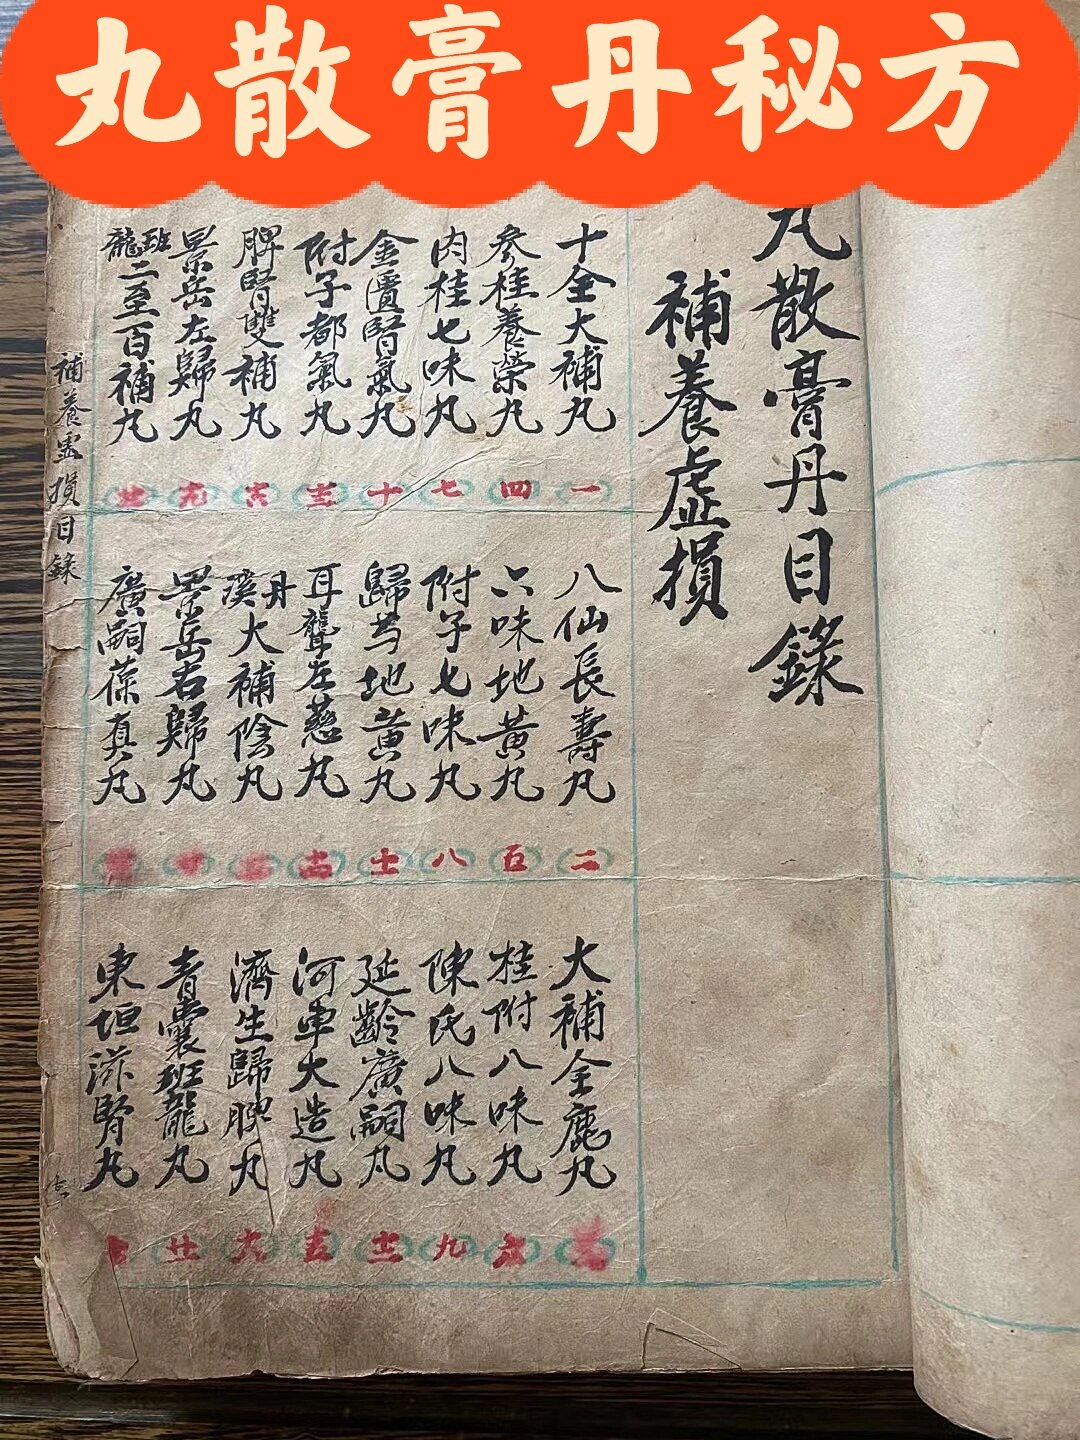 丸散膏丹秘方
丸散膏丹目錄
補養虛損
十全大補丸
一
參桂養榮丸
四
肉桂七味丸
七
金匱腎氣丸
十
附子都氣丸
脾腎雙補丸
景岳左歸丸
班龍二至百補丸
八仙長壽丸
二
六味地黃丸
五
附子七味丸
八
歸芍地黃丸
十一
耳聾左慈丸
丹溪大補陰丸
景岳右歸丸
廣嗣葆真丸
大補全鹿丸
三
桂附八味丸
六
陳氏八味丸
九
延齡廣嗣丸
十二
河車大造丸
濟生歸脾丸
青囊班龍丸
廿
東垣滋腎丸
補養虛損目錄